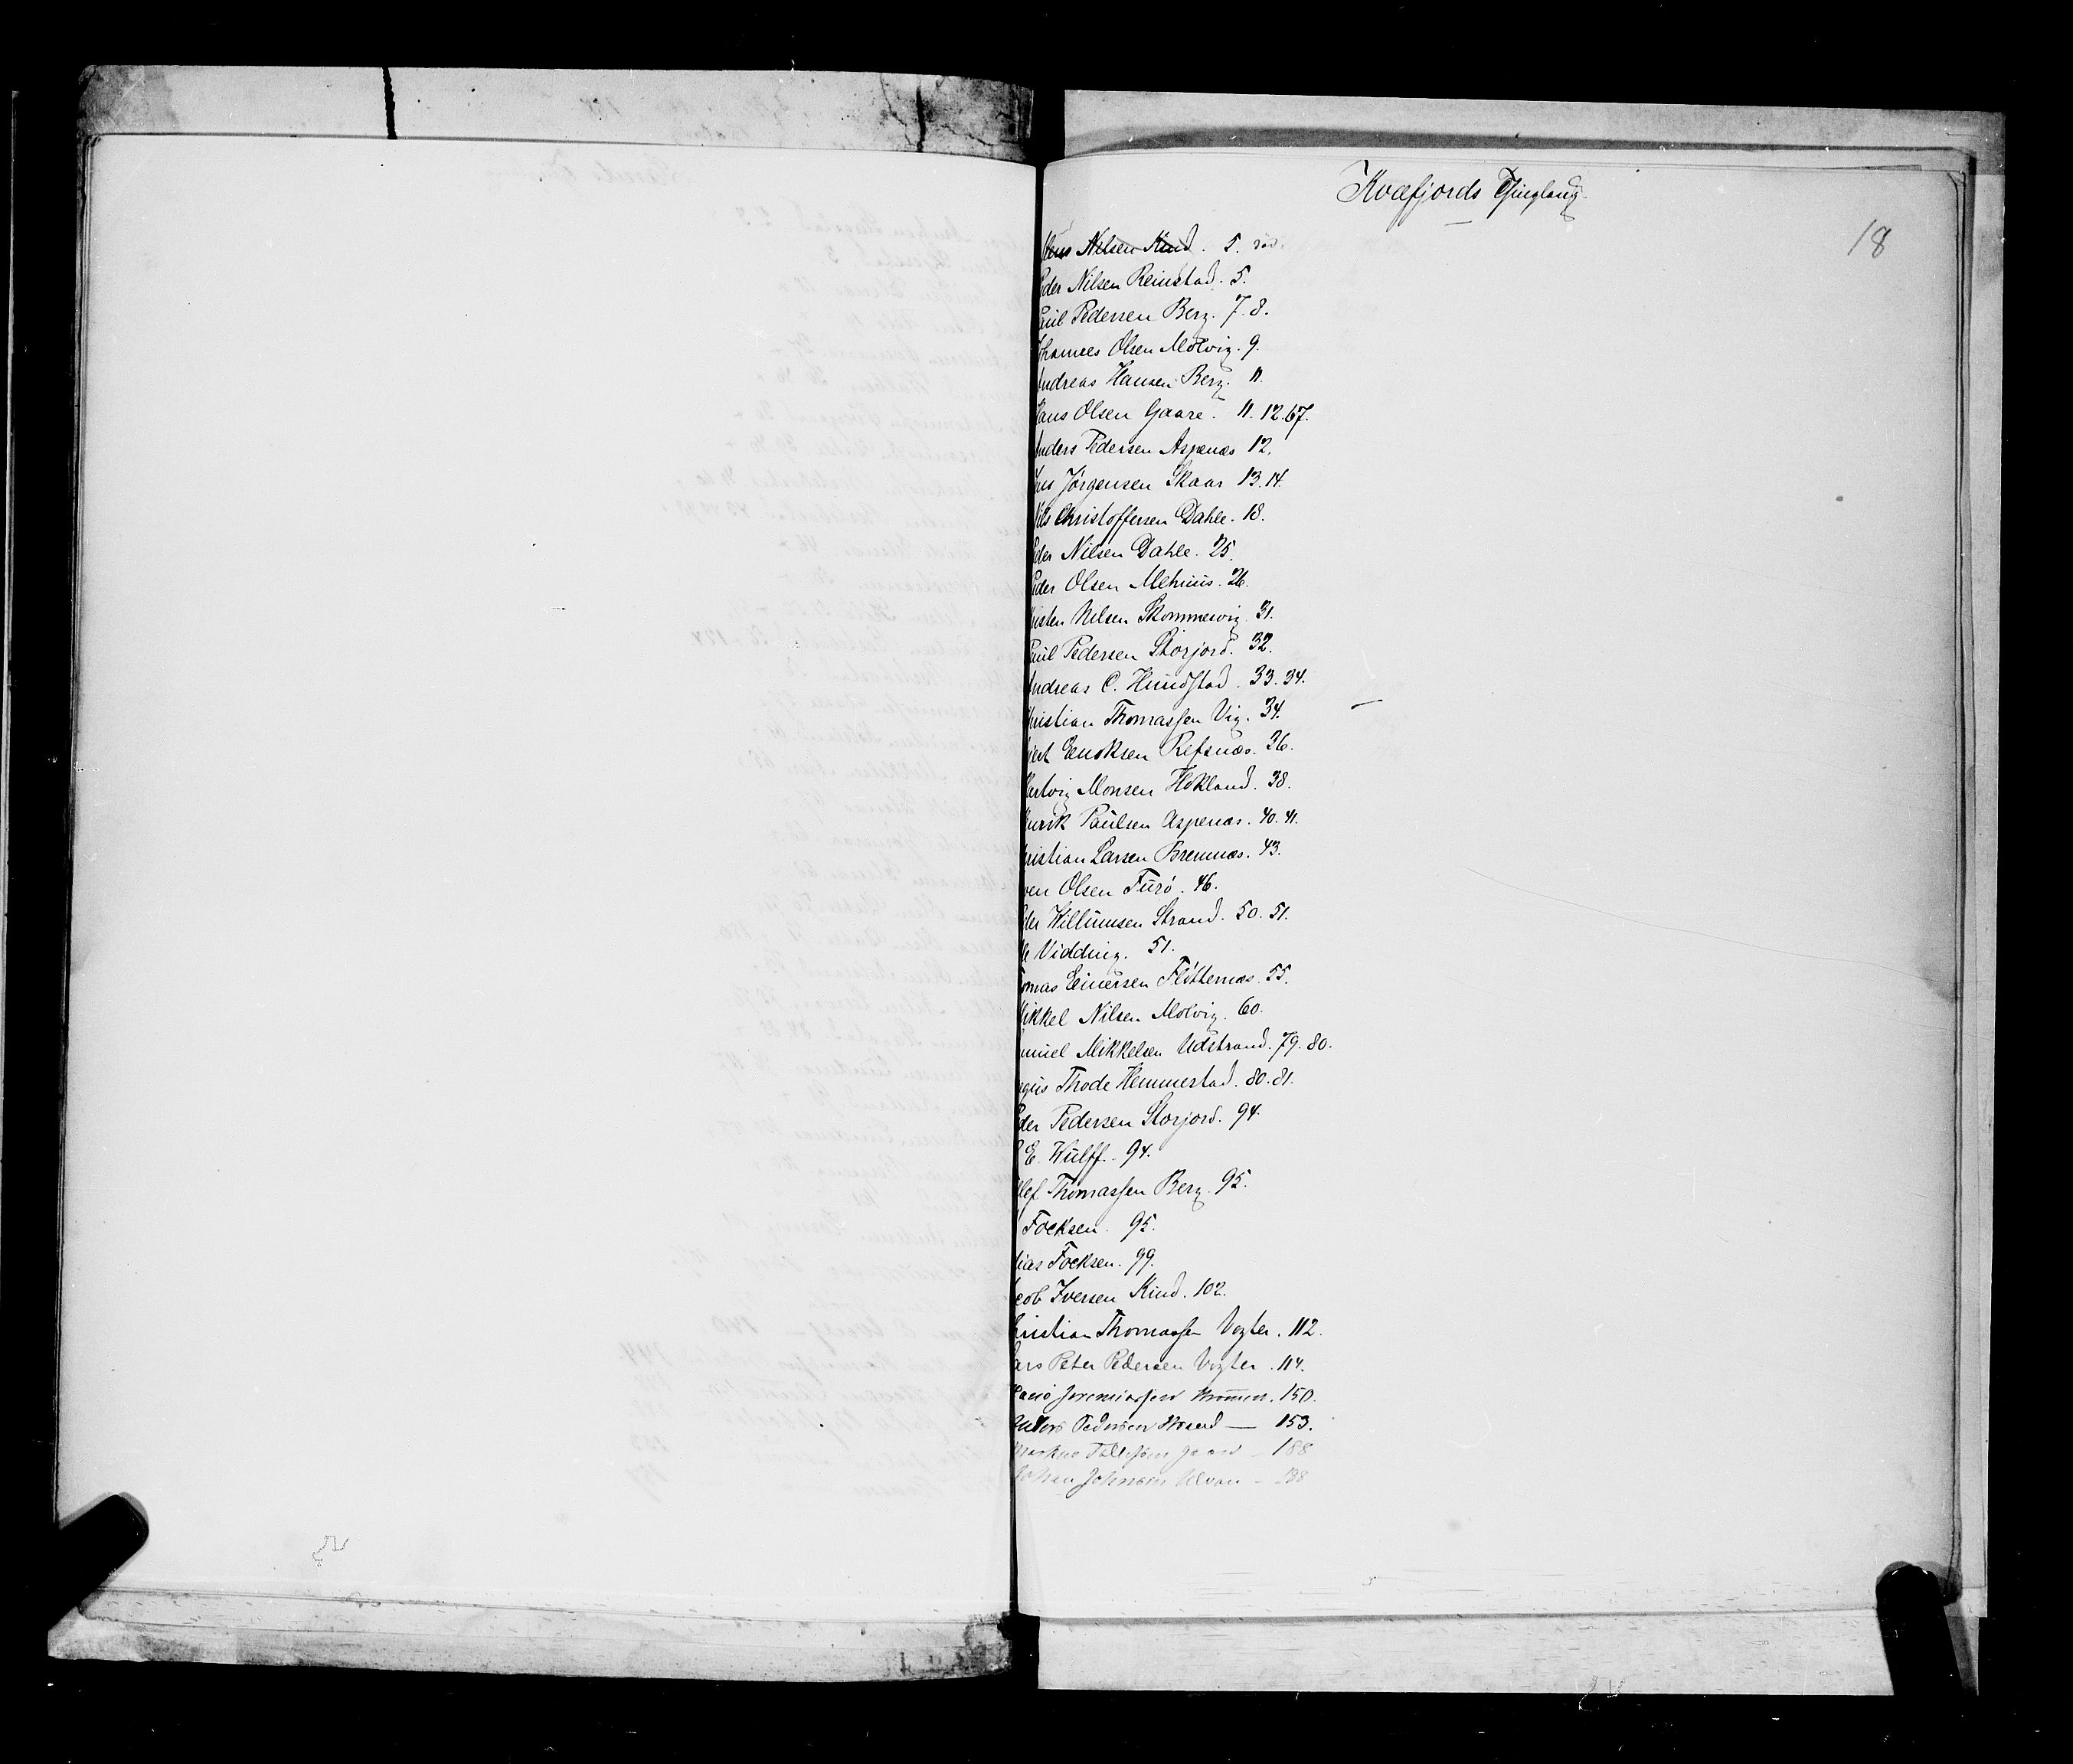 Kvæfjords Thinglaug
18
Nilsen Kind. 5.
eder Nilsen Reinstad. 5.
aul Pedersen Berg. 7. 8.
ohannes Olsen Molvig. 9.
Andreas Hansen Berg. 11.
Hans Olsen Gaare. 11. 12. 67.
Anders Pedersen Aspenæs 12.
ns Jørgensen Skaar 13. 14.
Nils Christoffersen Dahle. 18.
eder Nilsen Dahle. 25.
eder Olsen Melnæs. 26.
risten Nilsen Skommesvig. 31.
aul Pedersen Storjord. 32.
Andreas C. Hundstad. 33. 34.
Christian Thomassen Vig. 34.
ert Enoksen Refsnæs. 36.
Hartvig Monsen Hokland. 38.
enrik Paulsen Aspenæs. 40. 41.
ristian Larsen Bremnæs. 43.
ven Olsen Furø. 46.
eder Willumsen Strand. 50. 51.
Vidding. 51.
omas Einersen Fløttenæs. 55.
Mikkel Nilsen Molvig. 60.
muel Mikkelsen Udstrand. 79. 80.
Thode Hemmestad. 80. 81.
eder Pedersen Storjord. 94.
E. Wulff. 94.
lef Thomassen Berg. 95.
Focksen. 95.
lias Focksen. 99.
cob Iversen Kind. 102.
hristian Thomassen Vogter. 112.
ars Peter Pedersen Vogter. 114.
Jeremiassen 150.
Anders Pedersen Strand — 153.
Markus Tollefsen – 188
Johan Johnsen – 188